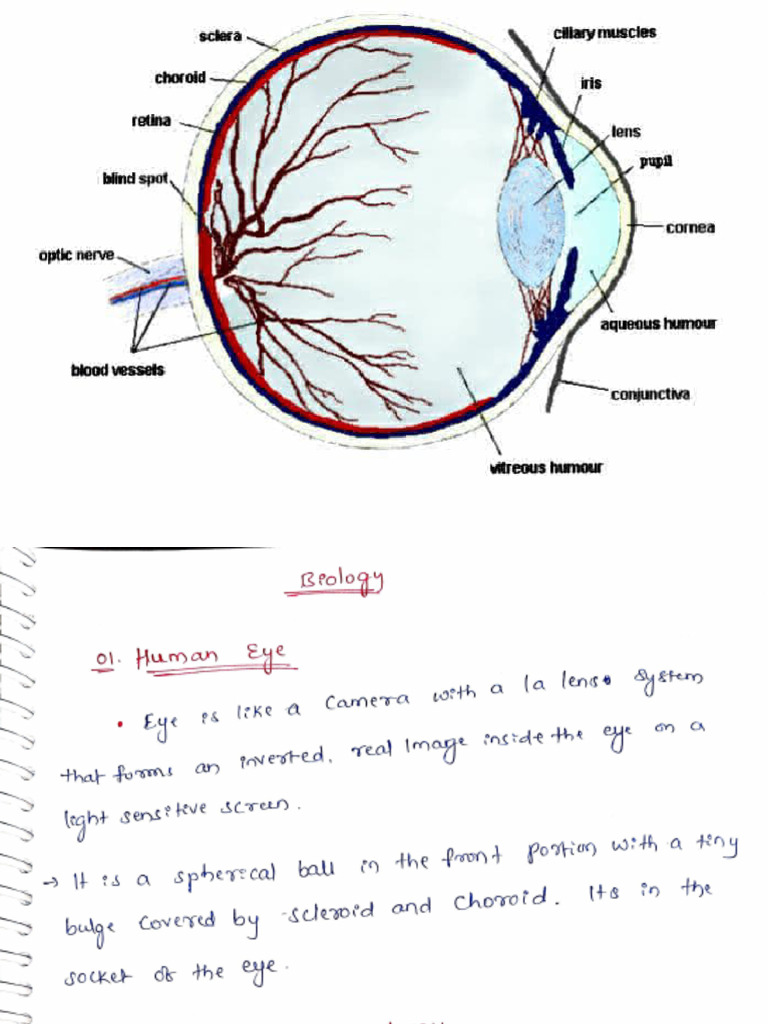 sclera
ciliary muscles
choroid
iris
retina
lens
pupil
blind spot
cornea
optic nerve
aqueous humour
blood vessels
conjunctiva
vitreous humour
Biology
01. Human Eye
• Eye is like a camera with a la lens system
that forms an inverted, real Image inside the eye on a
light sensitive screen.
→ It is a spherical ball in the front portion with a tiny
bulge covered by scleroid and choroid. Its in the
socket of the eye.